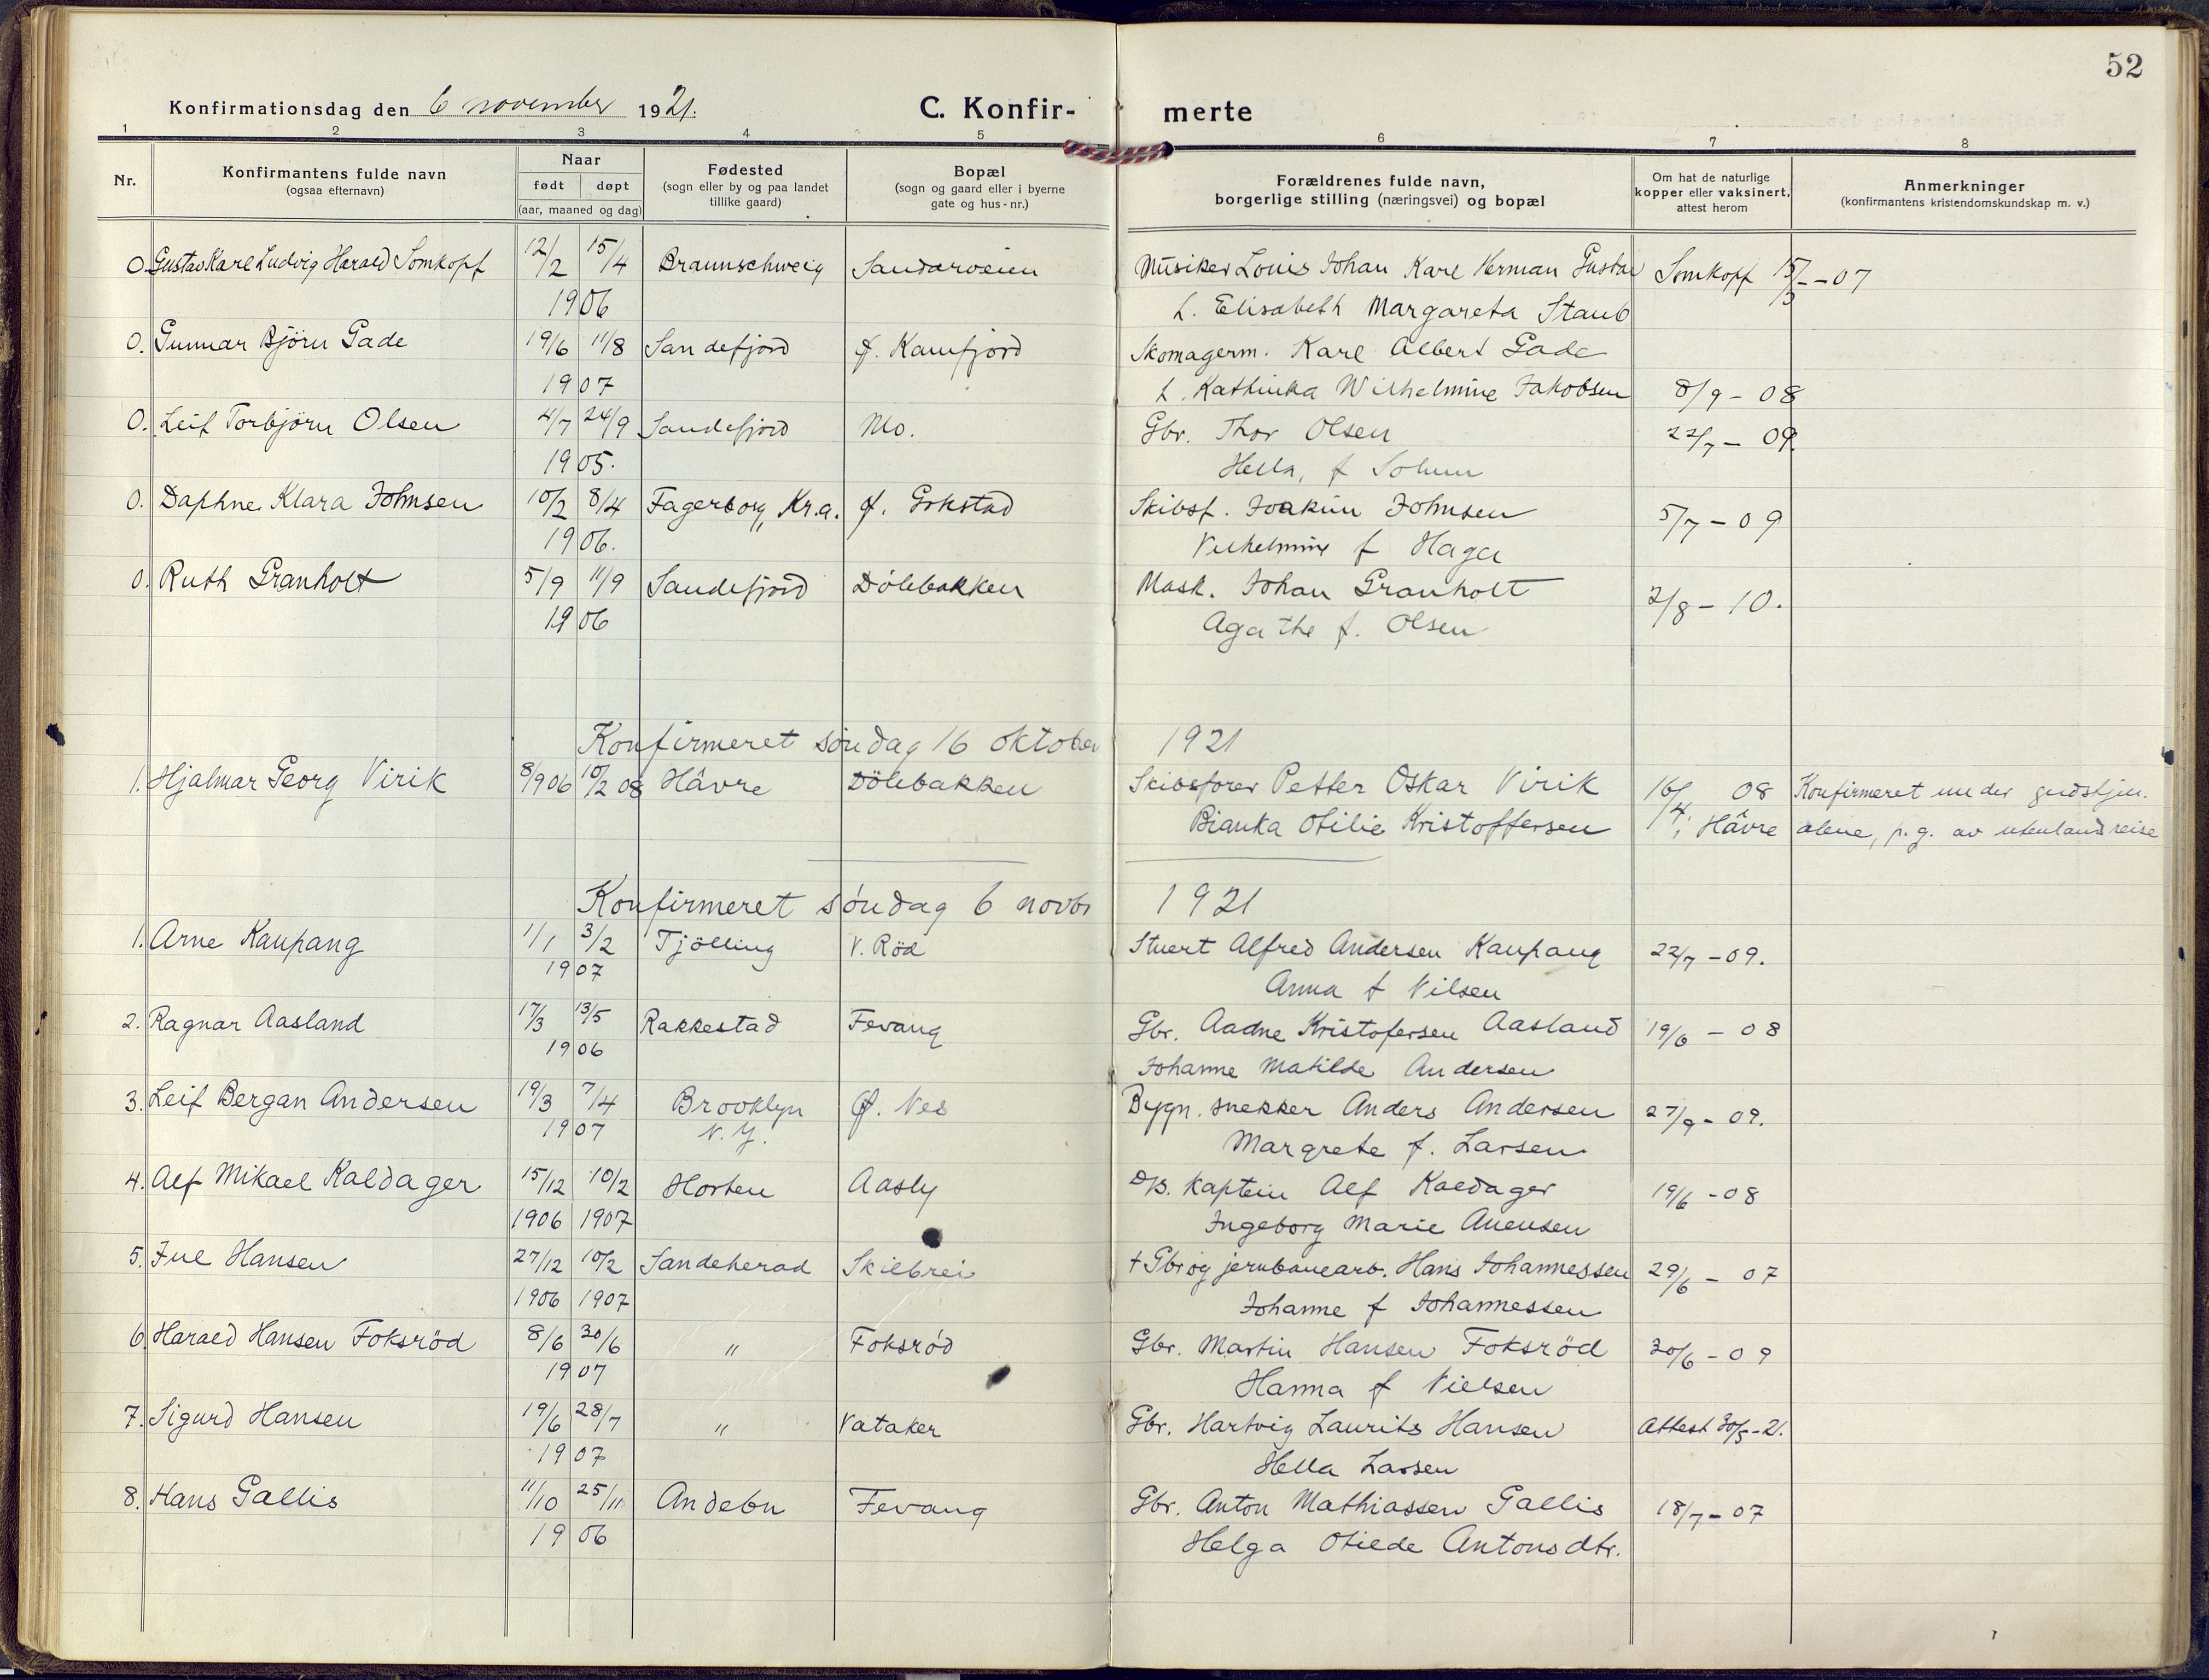 52
Konfirmationsdag den 6 november 1921. C. Konfir- merte
1 2 3 4 5 6 7 8
Nr. Konfirmantens fulde navn (ogsaa efternavn) Naar født døpt (aar, maaned og dag) Fødested (sogn eller by og paa landet tillike gaard) Bopæl (sogn og gaard eller i byerne gate og hus-nr.) Forældrenes fulde navn, borgerlige stilling (næringsvei) og bopæl Om hat de naturlige kopper eller vaksinert, attest herom Anmerkninger (konfirmantens kristendomskundskap m. v.)
0. Gustav Karl Ludvig Harald Somkopf 12/2 15/4 Braunschweig Sandarveien Musiker Louis Johan Karl Herman Gustav Somkopf 15/5 -07
1906 L. Elisabeth Margareta Staub
0. Gunnar Björn Gade 19/6 11/8 Sandefjord Ø. Kamfjord Skomagerm. Karl Albert Gade
1907 L. Kathinka Wilhelmine Jakobsen 8/9 - 08
0. Leif Torbjörn Olsen 4/7 24/9 Sandefjord Mo. Gbr. Thor Olsen 22/7 - 09.
1905. Hella, f Solum
0. Daphne Klara Johnsen 10/2 8/4 Fagerborg, Kr.a. Ø. Gokstad Skibsf. Joakim Johnsen 5/7 - 09
1906. Vilhelmine f Haga
0. Ruth Granholt 5/9 11/9 Sandefjord Dölebakken Mask. Johan Granholt 2/8 - 10.
1906 Agathe f. Olsen
Konfirmeret søndag 16 oktober 1921
1. Hjalmar Georg Virik 8/9 06 10/2 08 Hâvre Dölebakken Skibsfører Petter Oskar Virik 16/4 08 Konfirmeret under gudstjen.
Bianka Otilie Kristoffersen i Hâvre alene, p.g. av utenlandsreise
Konfirmeret søndag 6 novbr 1921
1. Arne Kaupang 1/1 3/2 Tjölling V. Röd Stuert Alfred Andersen Kaupang 22/7 - 09.
1907 Anna f Nilsen
2. Ragnar Aasland 17/3 13/5 Rakkestad Fevang Gbr. Aadne Kristofersen Aasland 19/6 - 08
1906 Johanne Matilde Andersen
3. Leif Bergan Andersen 19/3 7/4 Brooklyn Ø. Nes Bygn. snekker Anders Andersen 27/9 - 09.
1907 N.Y. Margrete f. Larsen
4. Alf Mikael Kaldager 15/12 10/2 Horten Aasly D/S. Kaptein Alf Kaldager 19/6 - 08
1906 1907 Ingeborg Marie Auensen
5. Juel Hansen 27/12 10/2 Sandeherad Skilbrei † Gbr og jernbanearb. Hans Johannessen 29/6 - 07
1906 1907 Johanne f Johannessen
6. Harald Hansen Foksröd 8/6 30/6 " Foksröd Gbr. Martin Hansen Foksröd 30/6 - 09
1907 Hanna f Nielsen
7. Sigurd Hansen 19/6 28/7 " Vataker Gbr. Hartvig Laurits Hansen Attest 30/5 - 21.
1907 Hella Larsen
8. Hans Gallis 11/10 25/11 Andebu Fevang Gbr. Anton Mathiassen Gallis 18/7 - 07
1906 Helga Otilde Antonsdtr.